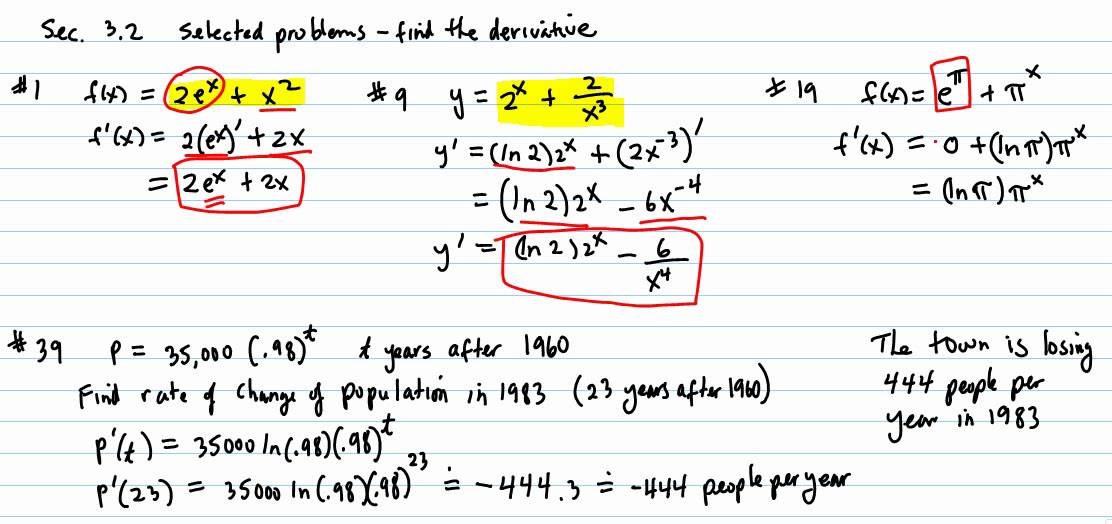 Sec. 3.2 selected problems – find the derivative
#1 f(x) = 2e^x + x^2
f'(x) = 2(e^x)' + 2x
= 2e^x + 2x
#9 y = 2^x + 2/x^3
y' = (ln 2)2^x + (2x^-3)'
= (ln 2)2^x – 6x^-4
y' = (ln 2)2^x – 6/x^4
#19 f(x) = e^π + π^x
f'(x) = 0 + (ln π)π^x
= (ln π)π^x
#39 P = 35,000 (.98)^t t years after 1960
Find rate of change of population in 1983 (23 years after 1960)
P'(t) = 35000 ln(.98)(.98)^t
P'(23) = 35000 ln(.98)(.98)^23 ≐ -444.3 ≐ -444 people per year
The town is losing
444 people per
year in 1983